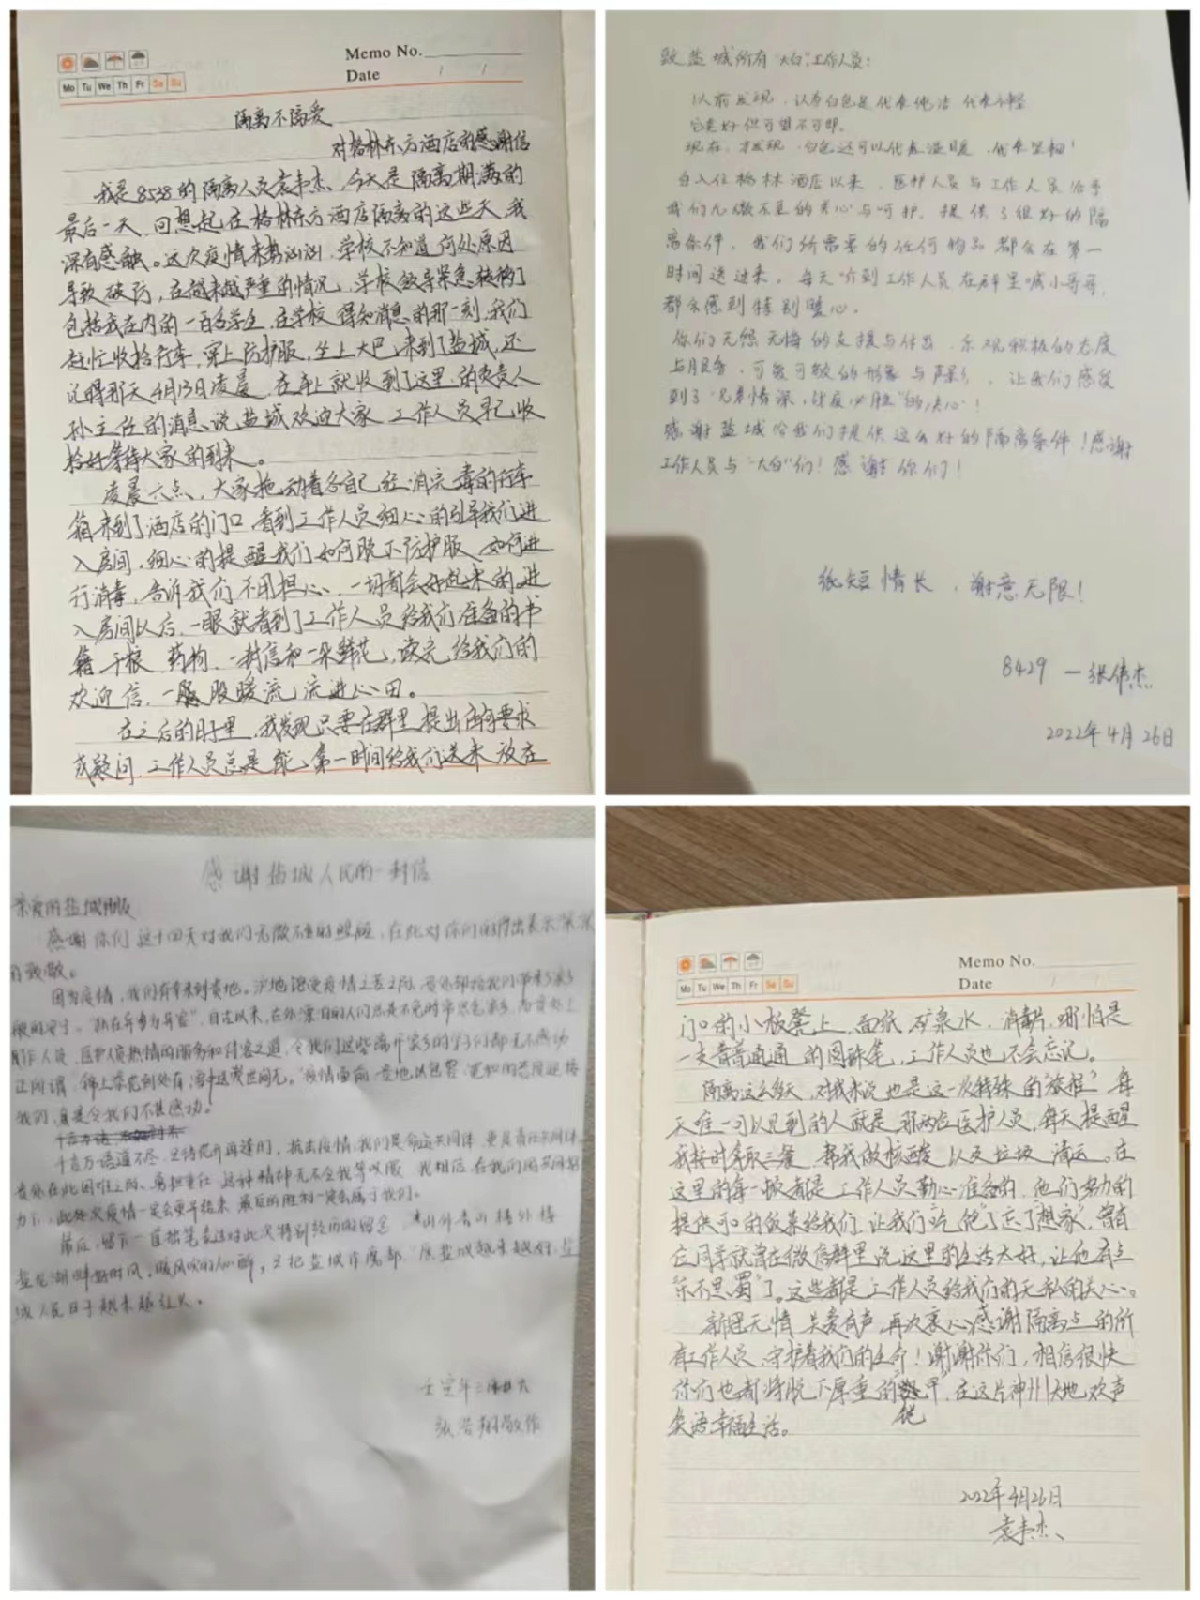 Memo No.
Date
Mo Tu We Th Fr Sa Su
隔离不隔爱
对格林东方酒店的感谢信
我是8538的隔离人员袁韦杰、今天是隔离期满的
最后一天、回想起在格林东方酒店隔离的这些天,我
深有感触。这次疫情来势汹汹,学校不知道何处原因
导致破防,在越来越严重的情况,学校领导紧急转移了
包括我在内的一百名学生,在学校得知消息的那一刻,我们
赶忙收拾行李,穿上防护服,坐上大巴,来到了盐城,还
记得那天4月13日凌晨,在车上就收到了这里的负责人
孙主任的消息,说盐城欢迎大家,工作人员早已收
拾好等待大家的到来。
凌晨六点,大家拖动着各自已经消完毒的行李
箱来到了酒店的门口,看到工作人员细心的引导我们进
入房间,细心的提醒我们如何脱下防护服、如何进
行消毒,告诉我们不用担心、一切都会好起来的,进
入房间以后,一眼就看到了工作人员给我们准备的书
籍 干粮 药物、一封信和一朵鲜花,读完给我们的
欢迎信,一股暖流流进心田。
在之后的日子里,我发现只要在群里提出所有要求
或疑问,工作人员总是能第一时间给我们送来 放在
致盐城所有"大白"工作人员:
以前发现,认为白色是代表纯洁 代表神圣
它美好但可望不可即。
现在,才发现,白色还可以代表温暖,代表坚韧!
自入住格林酒店以来,医护人员与工作人员给予
我们无微不至的关心与呵护,提供了很好的隔
离条件,我们所需要的任何物品都会在第一
时间送过来,每天听到工作人员在群里喊小哥哥,
都会感到特别暖心。
你们无怨无悔的支援与付出,乐观积极的态度
与服务,可爱可敬的形象与声影,让我们感受
到了"兄弟情深,战疫必胜"的决心!
感谢盐城给我们提供这么好的隔离条件!感谢
工作人员与"大白"们!感谢你们!
纸短情长,谢意无限!
8429 —张伟杰
2022年4月26日
感谢盐城人民的一封信
亲爱的盐城朋友
感谢你们这十四天对我们无微不至的照顾,在此对你们的付出表示深深
的致敬。
因为疫情,我们有幸来到贵地。
医护人员热情的服务和待客之道,令我们这些离开家乡的学子们都无不感动
我们,真是令我们不甚感动。
千言万语道不尽,抗击疫情,我们是命运共同体,更是责任共同体
力下,此次疫情一定会更早结束,最后的胜利一定会属于我们。
最后,留下一首拙笔表达对此次特别经历的留念
城人民日子越来越红火。
壬寅年三月廿六
张浩翔敬作
Memo No.
Date
Mo Tu We Th Fr Sa Su
门口的小板凳上,面纸 矿泉水,消毒片,哪怕是
一支普普通通的圆珠笔,工作人员也不会忘记。
隔离这么多天,对我来说也是这一次特殊的"旅程",每
天唯一可以见到的人就是那两位医护人员,每天提醒
我按时拿取三餐,帮我做核酸以及垃圾清运。在
这里的每一顿都是工作人员勤心准备的,他们努力的
提供可口的饭菜给我们,让我们"吃饱了忘了想家",曾有
位同学就曾在微信群里说,这里的生活太好,让他有点
"乐不思蜀"了。这些都是工作人员给我们的无私的关心。
新冠无情 关爱有声,再次衷心感谢隔离点的所
有工作人员,守护着我们的生命!谢谢你们,相信很快
你们也都将脱下厚重的"铠甲",在这片神州大地欢声
笑语幸福生活。
2022年4月26日
袁韦杰